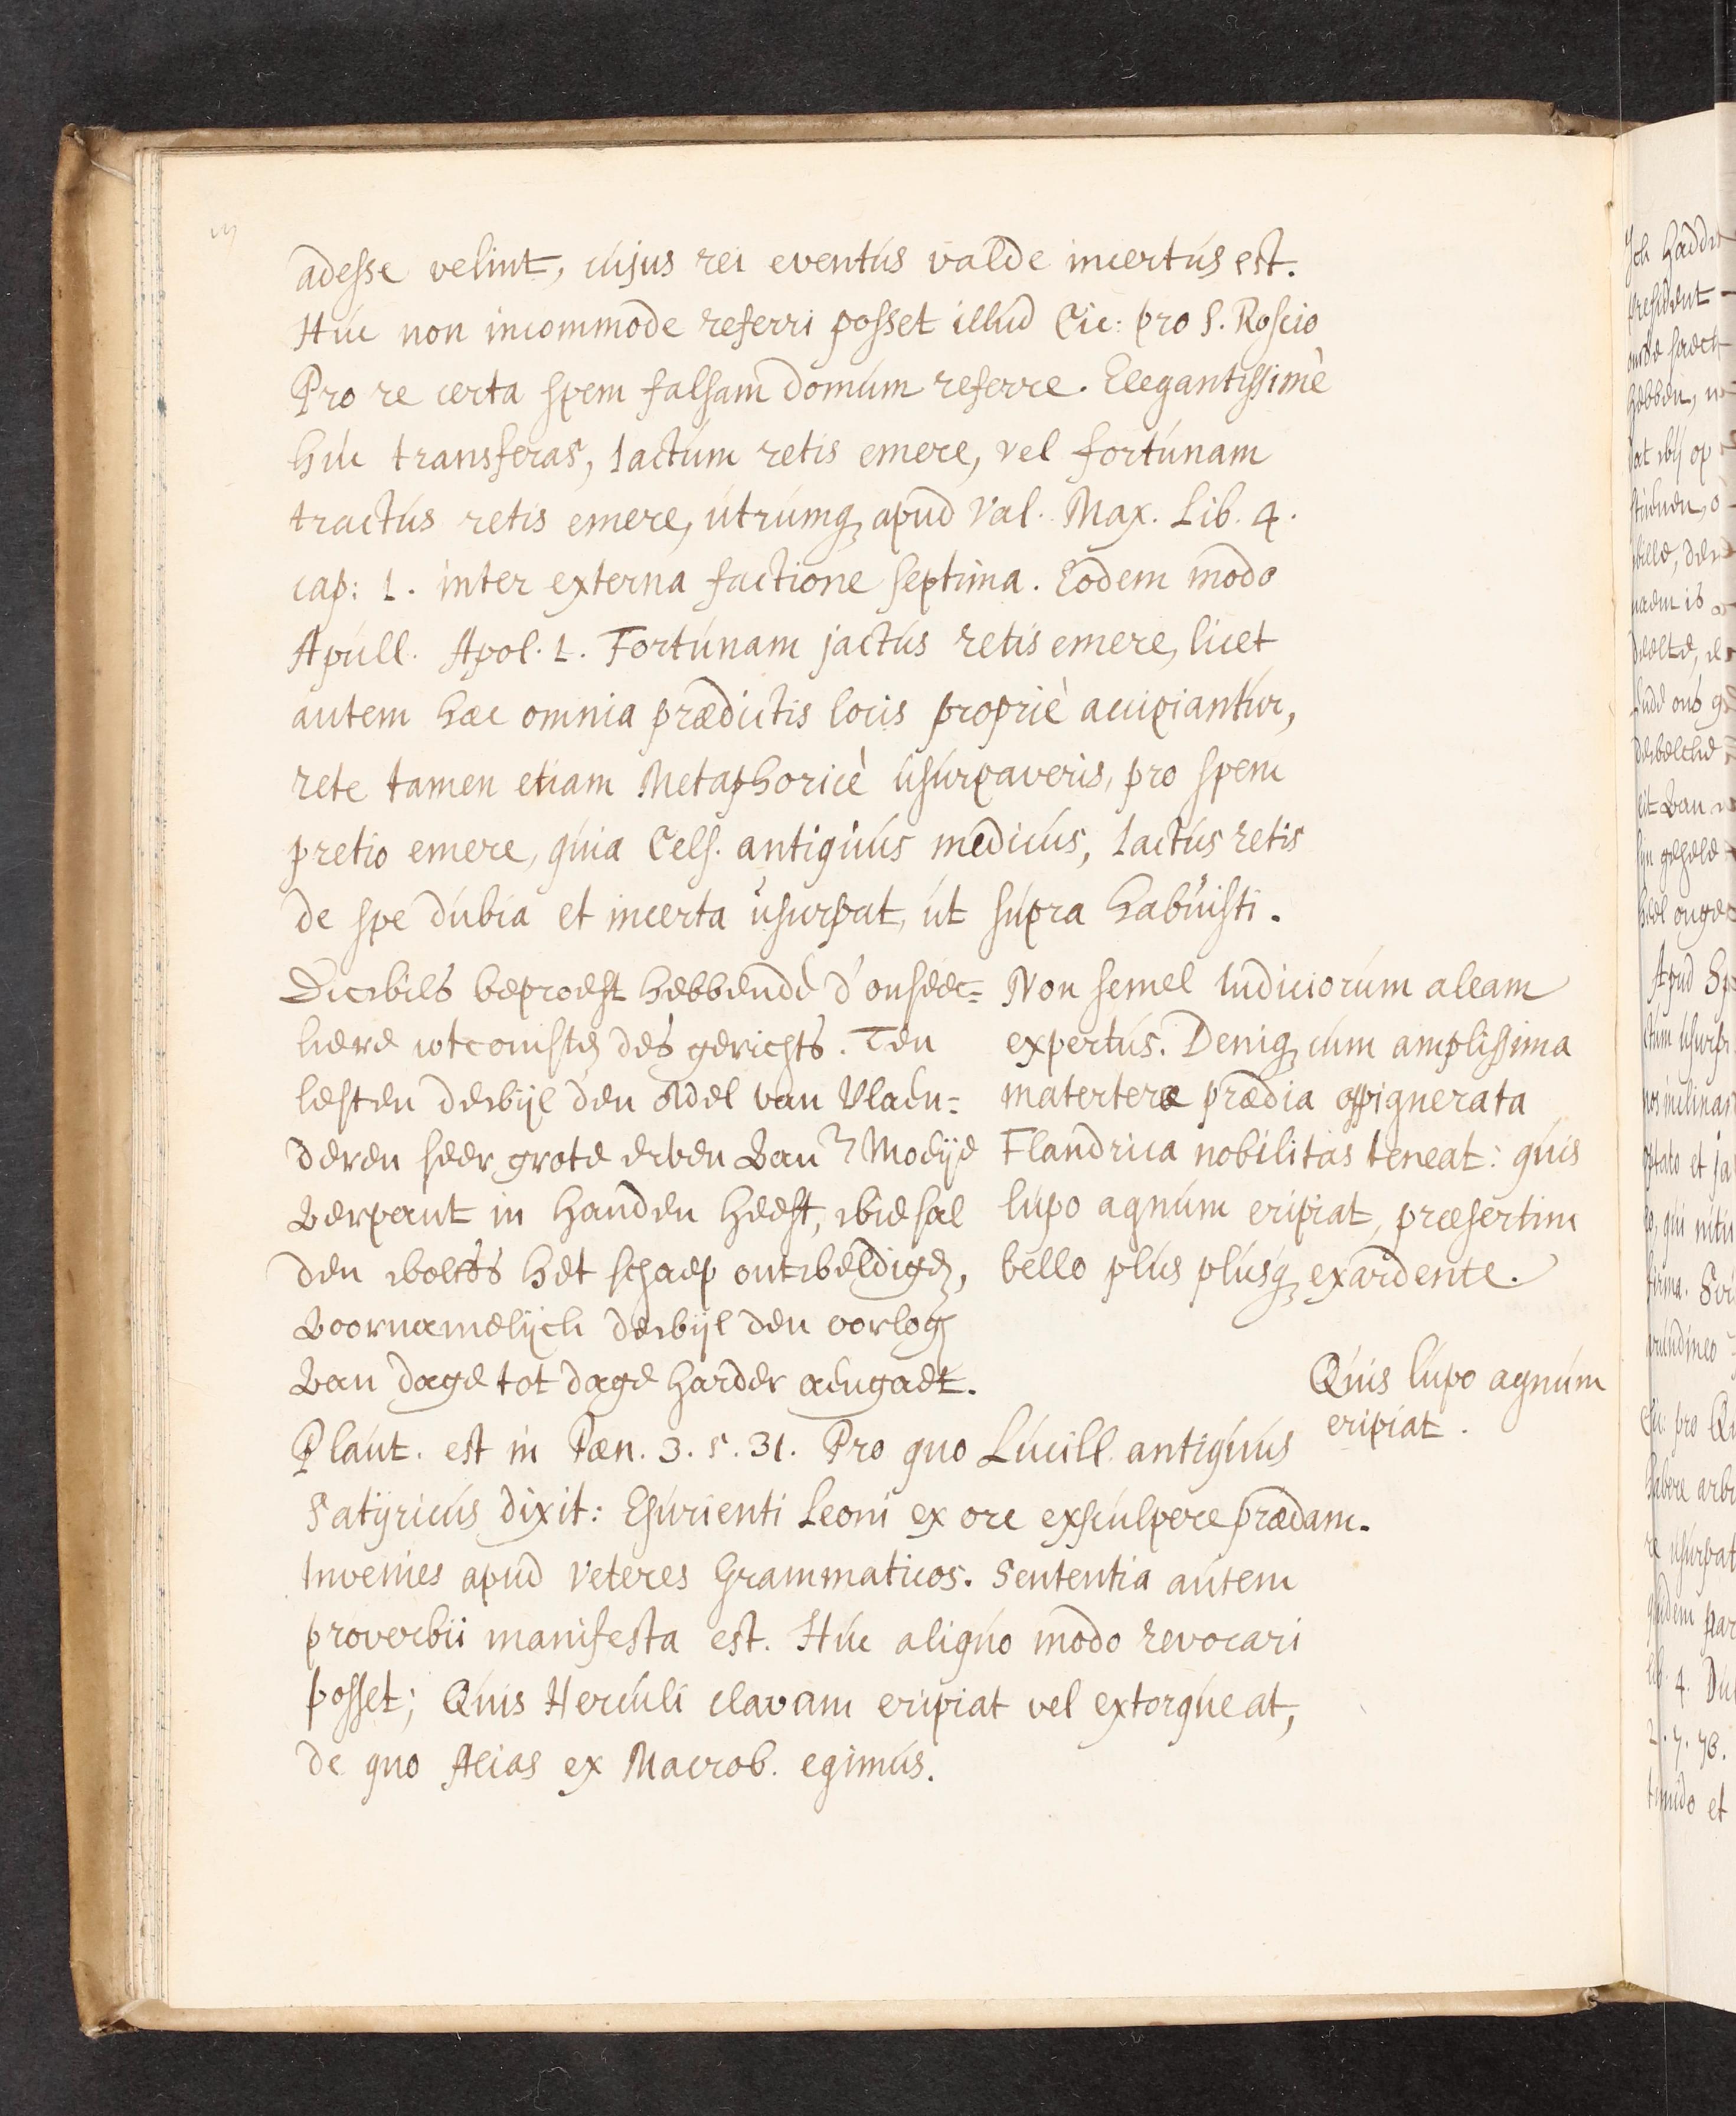 adesse velint, cujus rei eventus valde incertus est.
Huc non incommode referri posset illud Cic: pro S. Roscio
Pro re certa spem falsam domum referre. Elegantissimè
huc transferas, Iactum retis emere, vel fortunam
tractus retis emere, utrumq apud Val. Max. Lib. 4.
cap: 1. inter externa factione septima. Eodem modo
Apull. Apol. 1. Fortunam jactus retis emere, licet
autem hæc omnia prædictis locis propriè accipiantur,
rete tamen etiam Metaphoricè usurpaveris, pro spem
pretio emere, quia Cels. antiquus medicus, Iactus retis
de spe dubia et incerta usurpat, ut supra habuisti.
Dicwils beproeft hebbende d'onseec=
kere wtcomste des gerichts. Ten
lesten dewijl den Adel van Vlaen=
deren seer grote erven van Moeije
verpant in handen heeft, wie sal
den wolf het schaep ontweldigen,
voornamelijck dewijl den oorlog
van dage tot dage harder aengaet.
Non semel Iudiciorum aleam
expertus. Deniq cum amplissima
materteræ prædia oppignerata
Flandrica nobilitas teneat: quis
lupo agnum eripiat, præsertim
bello plus plusq exardente.
Quis lupo agnum
eripiat.
Plaut. est in Pæn. 3. 5. 31. Pro quo Lucill. antiquus
Satijricus dixit: Esurienti Leoni ex ore exsculpere prædam.
Invenies apud Veteres Grammaticos. Sententia autem
proverbii manifesta est. Huc aliquo modo revocari
posset; Quis Herculi clavam eripiat vel extorqueat,
de quo Alias ex Macrob. egimus.